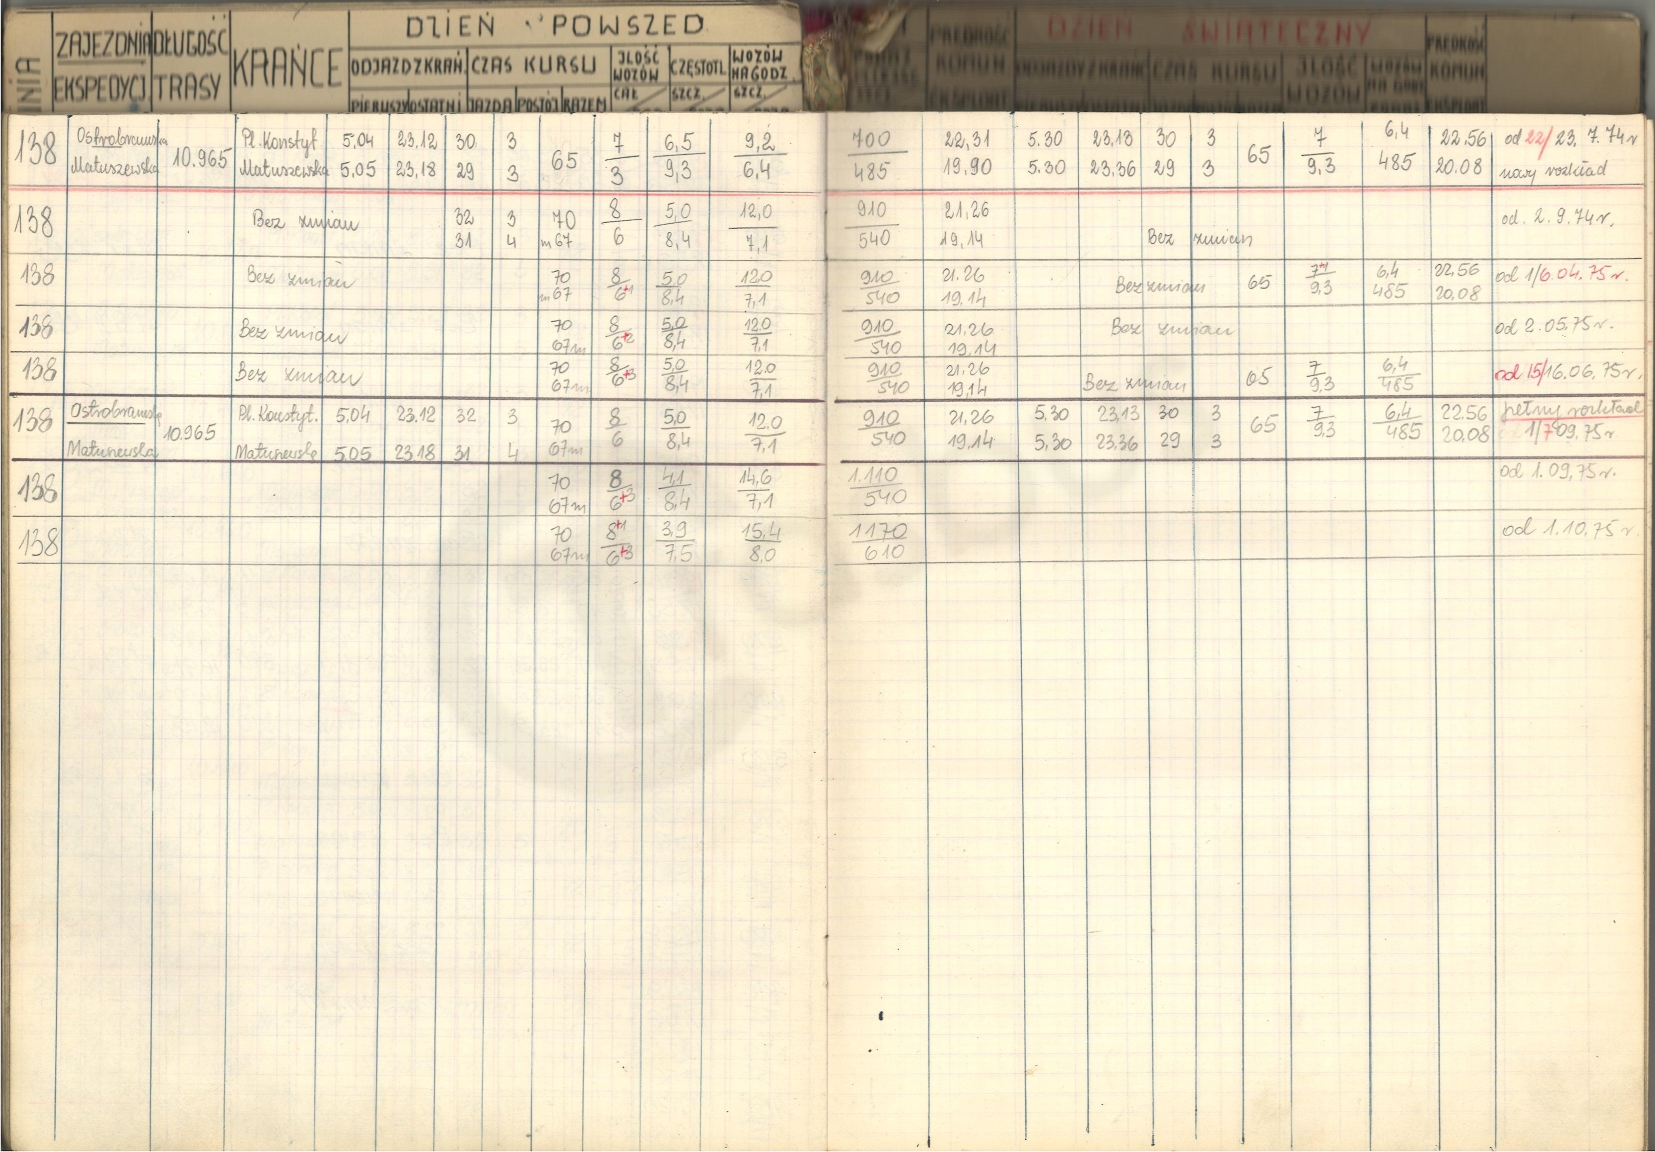 DZIEŃ POWSZED
DZIEŃ ŚWIĄTECZNY
ZAJEZDNIA DŁUGOŚĆ KRAŃCE ODJAZD Z KRAŃ. CZAS KURSU ILOŚĆ WOZÓW CZĘSTOTL. WOZÓW NA GODZ.
EKSPEDYCJ TRASY PIERWSZY OSTATNI JAZDA POSTÓJ RAZEM CAŁ SZCZ. SZCZ.
PRĘDKOŚĆ KOMUN CZAS KURSU ILOŚĆ WOZÓW PRĘDKOŚĆ KOMUN
138 Ostrobramska 10.965 Pl. Konstyt 5,04 23,12 30 3 65 7 6,5 9,2 700 22,31 5.30 23,13 30 3 65 7 6,4 22.56 od 22/23.7.74r
Matuszewska Matuszewska 5,05 23,18 29 3 3 9,3 6,4 485 19,90 5.30 23,36 29 3 9,3 485 20.08 nowy rozkład
138 Bez zmian 32 3 70 8 5,0 12,0 910 21,26 od. 2.9.74r.
31 4 m67 6 8,4 7,1 540 19,14 Bez zmian
138 Bez zmian 70 8 5,0 12,0 910 21.26 Bez zmian 65 7+1 6,4 22,56 od 1/6.04.75r.
m67 6+1 8,4 7,1 540 19.14 9,3 485 20,08
138 Bez zmian 70 8 5,0 12,0 910 21.26 Bez zmian od 2.05.75r.
67m 6+2 8,4 7,1 540 19.14
138 Bez zmian 70 8 5,0 12,0 910 21.26 Bez zmian 65 7 6,4 od 15/16.06.75r.
67m 6+3 8,4 7,1 540 19,14 9,3 485
138 Ostrobramska 10.965 Pl. Konstyt. 5,04 23,12 32 3 70 8 5,0 12,0 910 21,26 5,30 23,13 30 3 65 7 6,4 22.56 pełny rozkład
Matuszewska Matuszewska 5,05 23,18 31 4 67m 6 8,4 7,1 540 19,14 5,30 23,36 29 3 9,3 485 20,08 1/709,75r
138 70 8 4,1 14,6 1.110 od 1.09,75r.
67m 6+3 8,4 7,1 540
138 70 8+1 3,9 15,4 1170 od 1.10,75r.
67m 6+3 7,5 8,0 610